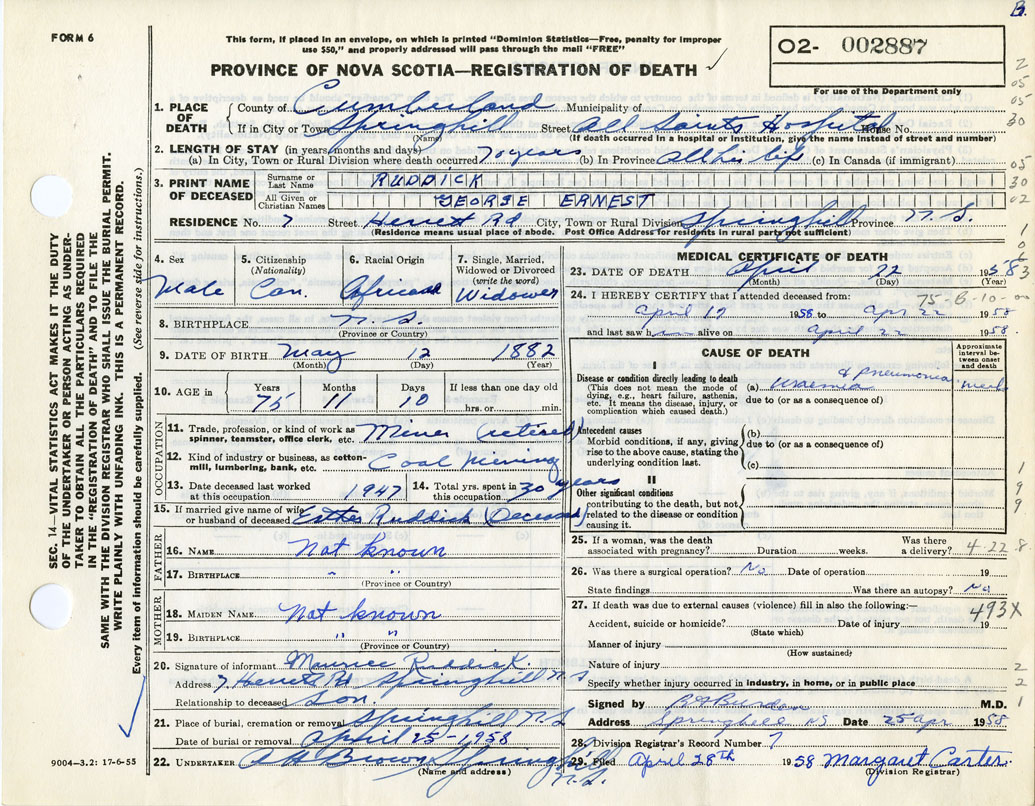 B.
FORM 6
This form, if placed in an envelope, on which is printed "Dominion Statistics—Free, penalty for improper
use $50," and properly addressed will pass through the mail "FREE"
PROVINCE OF NOVA SCOTIA—REGISTRATION OF DEATH ✓
02- 002887
For use of the Department only
1. PLACE OF DEATH County of Cumberland Municipality of
If in City or Town Springhill Street All Saints Hospital House No.
(Name) (If death occurred in a hospital or institution, give the name instead of street and number)
2. LENGTH OF STAY (in years, months and days)
(a) In City, Town or Rural Division where death occurred 70 years (b) In Province all his life (c) In Canada (if immigrant)
3. PRINT NAME OF DECEASED Surname or Last Name RUDDICK
All Given or Christian Names GEORGE ERNEST
RESIDENCE No. 7 Street Herrett Rd City, Town or Rural Division Springhill Province N.S.
(Residence means usual place of abode. Post Office Address for residents in rural parts not sufficient)
4. Sex Male
5. Citizenship (Nationality) Can.
6. Racial Origin African
7. Single, Married, Widowed or Divorced (write the word) Widower
8. BIRTHPLACE N.S.
(Province or Country)
9. DATE OF BIRTH May 12 1882
(Month) (Day) (Year)
10. AGE in Years 75 Months 11 Days 10 If less than one day old hrs. or min.
OCCUPATION
11. Trade, profession, or kind of work as spinner, teamster, office clerk, etc. Miner (retired)
12. Kind of industry or business, as cotton-mill, lumbering, bank, etc. Coal Mining
13. Date deceased last worked at this occupation 1947
14. Total yrs. spent in this occupation 30 years
15. If married give name of wife or husband of deceased Esther Ruddick (Deceased)
FATHER
16. NAME Not known
17. BIRTHPLACE " "
(Province or Country)
MOTHER
18. MAIDEN NAME Not known
19. BIRTHPLACE " "
(Province or Country)
20. Signature of informant Maurice Ruddick.
Address 7 Herrett Rd Springhill N S
Relationship to deceased Son.
21. Place of burial, cremation or removal Springhill N.S.
Date of burial or removal April 25-1958
22. UNDERTAKER Brown Springhill N.S.
(Name and address)
MEDICAL CERTIFICATE OF DEATH
23. DATE OF DEATH April 22 1958
(Month) (Day) (Year)
75-B-10-
24. I HEREBY CERTIFY that I attended deceased from:
April 12 1958 to Apr 22 1958
and last saw h alive on April 22 1958.
CAUSE OF DEATH
Approximate interval between onset and death
I
Disease or condition directly leading to death
(This does not mean the mode of dying, e.g., heart failure, asthenia, etc. It means the disease, injury, or complication which caused death.)
(a) Uraemia & pneumonia
due to (or as a consequence of)
Antecedent causes
Morbid conditions, if any, giving rise to the above cause, stating the underlying condition last.
(b)
due to (or as a consequence of)
(c)
II
Other significant conditions
contributing to the death, but not related to the disease or condition causing it.
25. If a woman, was the death associated with pregnancy? Duration weeks. Was there a delivery? 4-22 8
26. Was there a surgical operation? No Date of operation 19
State findings Was there an autopsy? No
27. If death was due to external causes (violence) fill in also the following:— 493X
Accident, suicide or homicide? Date of injury 19
(State which)
Manner of injury
(How sustained)
Nature of injury
Specify whether injury occurred in industry, in home, or in public place
Signed by M.D.
Address Springhill NS Date 25 Apr 1958
28. Division Registrar's Record Number 7
29. Filed April 28th 1958 Margaret Carter.
(Division Registrar)
2
05
05
30
05
30
02
1
0
6
3
1
9
9
2
2
1
SEC. 14—VITAL STATISTICS ACT MAKES IT THE DUTY
OF THE UNDERTAKER OR PERSON ACTING AS UNDER-
TAKER TO OBTAIN ALL THE PARTICULARS REQUIRED
IN THE "REGISTRATION OF DEATH" AND TO FILE THE
SAME WITH THE DIVISION REGISTRAR WHO SHALL ISSUE THE BURIAL PERMIT.
WRITE PLAINLY WITH UNFADING INK. THIS IS A PERMANENT RECORD.
Every item of information should be carefully supplied. (See reverse side for instructions.)
9004—3.2: 17-6-55